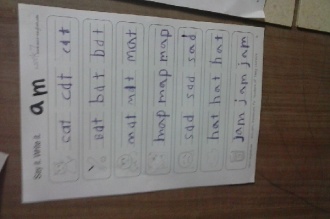 Say it. Write it.
am
cat cat cat
bat bat bat
mat mat mat
map map map
sad sad sad
hat hat hat
jam jam jam